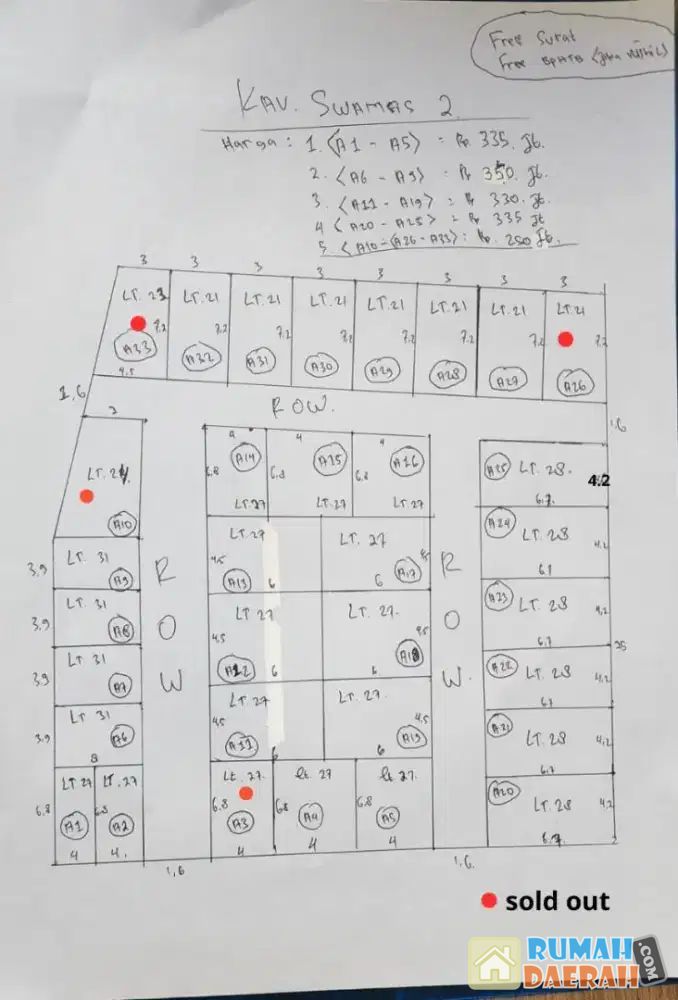 Free Surat
Free BPHTB (jika NJOP NIHIL)
KAV. SWAMAS 2
Harga : 1. <A1 - A5> = Rp. 335. Jt.
2. <A6 - A9> = Rp 350. Jt.
3. <A11 - A19> = Rp 330. Jt.
4 <A20 - A25> = Rp 335 Jt
5 <A10 - <A26 - A33> : Rp. 250 Jt.
3 3 3 3 3 3 3 3
LT. 23 LT. 21 LT. 21 LT. 21 LT. 21 LT. 21 LT. 21 LT. 21
7.2 7.2 7.2 7.2 7.2 7.2 7.2 7.2
A33 A32 A31 A30 A29 A28 A27 A26
4,5
1,6 ROW. 1,6
3
4 4 4
A14 A15 A16
6.8 6.8 6.8
LT.27 LT.27 LT.27
LT. 24
A10
A25 LT. 28. 4.2
6.7
LT.27 LT. 27
4.5 A13 6 6 A17 4.5
A24 LT. 28 4.2
6.7
3,9 LT. 31 A9
3.9 LT. 31 A8
3.9 LT. 31 A7
3.9 LT. 31 A6
8
R O W
R O W.
LT 27 LT. 27.
4.5 A12 6 6 A18 4.5
A23 LT. 28 4.2
6.7
25
A22 LT. 28 4.2
6.7
LT. 27 LT. 27.
4.5 A11 6 6 A19 4.5
A21 LT. 28 4.2
6.7
LT 27 LT. 27
6.8 A1 6.8 A2
4 4.
Lt. 27. Lt. 27 Lt 27.
6.8 A3 6.8 A4 6.8 A5
4 4 4
A20 LT. 28 4.2
6.7
1,6 1,6.
sold out
RUMAH
DAERAH
.COM